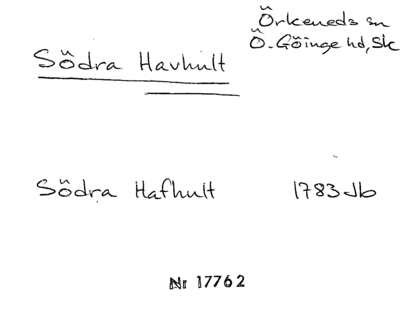 Örkeneds sn
Södra Havhult
Ö. Göinge hd, Sk
Södra Hafhult 1783 Jb
Nr 17762